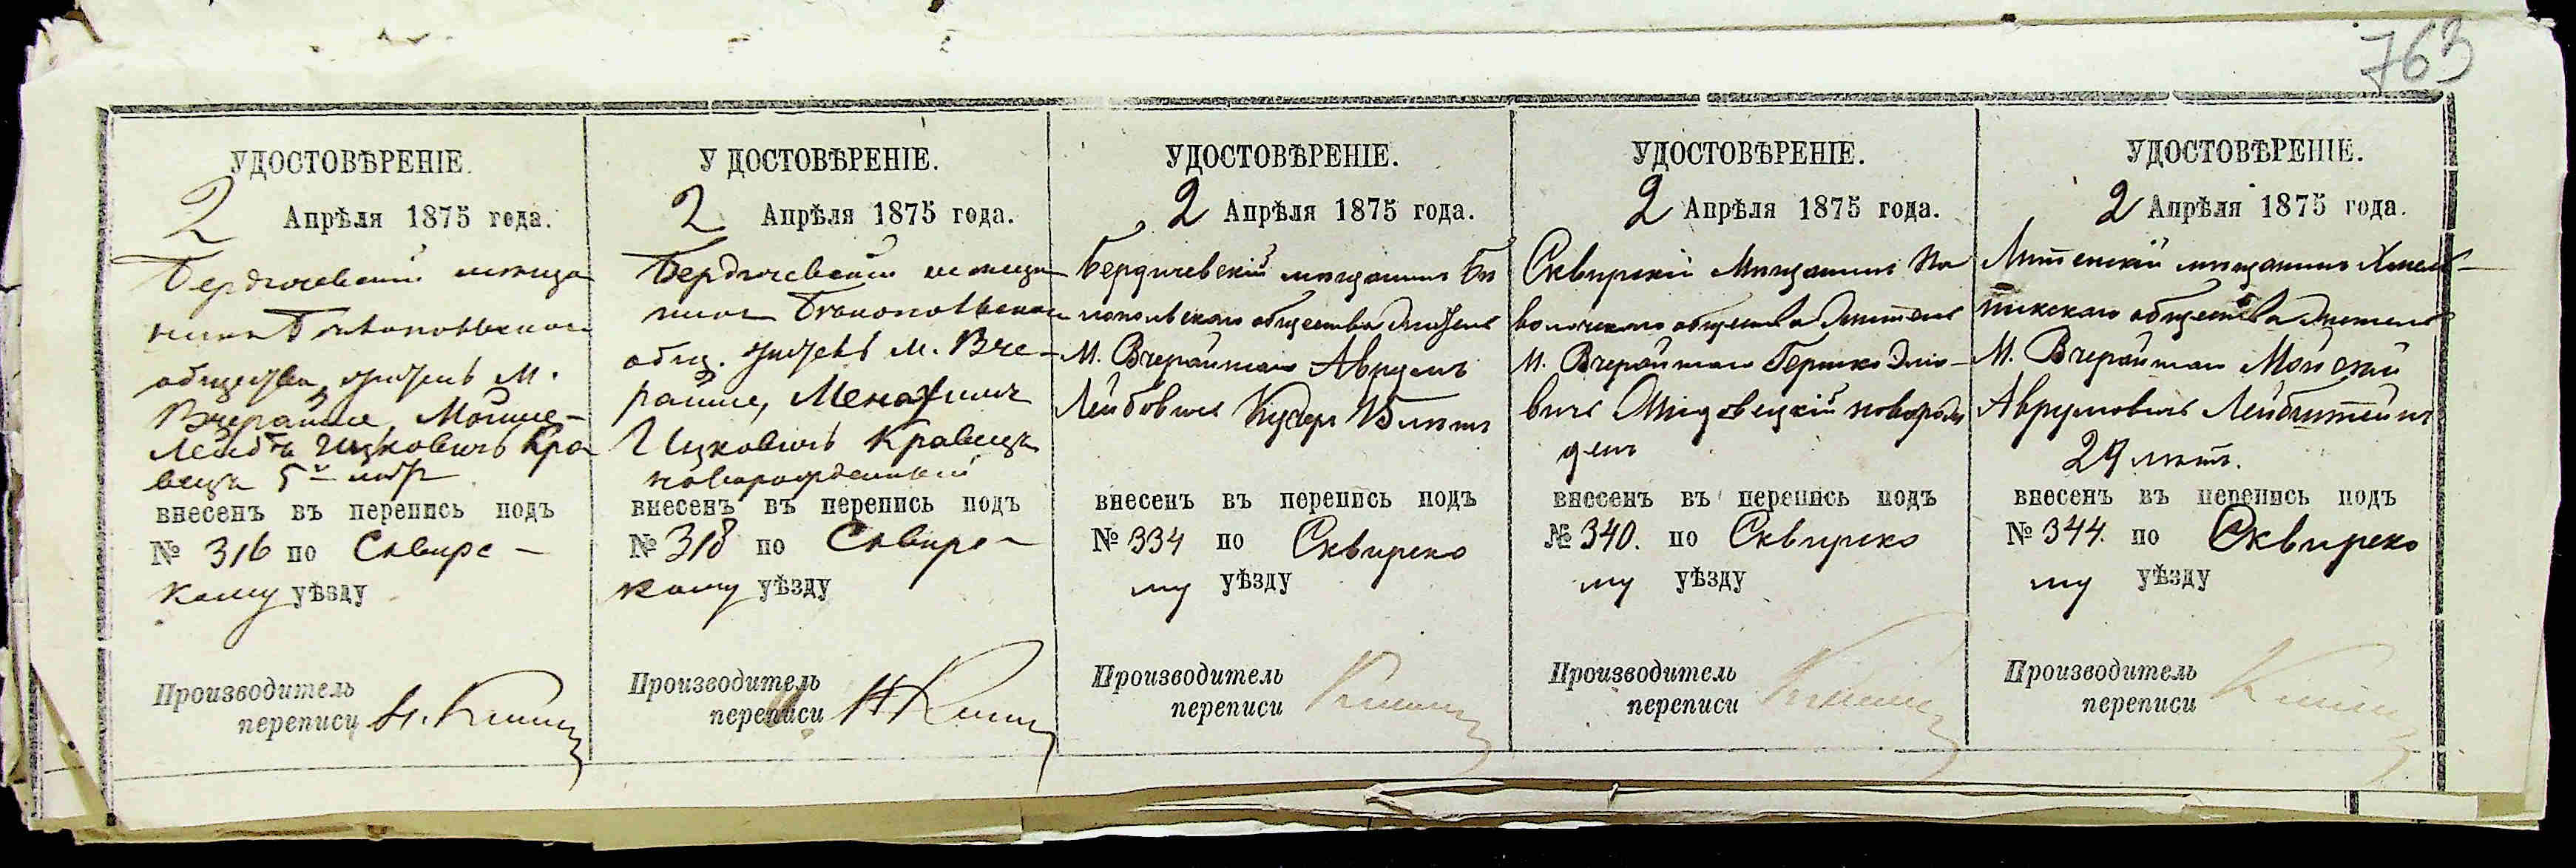 763
УДОСТОВѢРЕНІЕ.
2 Апрѣля 1875 года.
Бердичевский мѣща
нинъ Бѣлопольскаго
общества, житель м.
Вчерайше, Мошие-
Лейба Ицковичъ Кра
вецъ 5
внесенъ въ перепись подъ
№ 316 по Сквирс-
кому уѣзду
Производитель
переписи
У ДОСТОВѢРЕНІЕ.
2 Апрѣля 1875 года.
Бердичевский мѣща
нинъ Бѣлопольскаго
общ. житель м. Вче-
райше, Менахимъ
Ицковичъ Кравецъ
новорожденный
внесенъ въ перепись подъ
№ 318 по Сквирс-
кому уѣзду
Производитель
переписи
УДОСТОВѢРЕНІЕ.
2 Апрѣля 1875 года.
Бердичевскій мѣщанинъ Бѣ
лопольскаго общества житель
М. Вчерайшаго Аврумъ
Лейбовичъ 15 лѣтъ
внесенъ въ перепись подъ
№ 334 по Сквирско
му уѣзду
Производитель
переписи
УДОСТОВѢРЕНІЕ.
2 Апрѣля 1875 года.
Сквирскій Мѣщанинъ Па
волочскаго общества житель
М. Вчерайшаго Гершко Элю-
вичъ новорож
денъ
внесенъ въ перепись подъ
№ 340. по Сквирско
му уѣзду
Производитель
переписи
УДОСТОВѢРЕНІЕ.
2 Апрѣля 1875 года.
Литинскій мѣщанинъ Хмель-
никскаго общества житель
М. Вчерайшаго Мойсей
Аврумовичъ Лейбштейнъ
29 лѣтъ.
внесенъ въ перепись подъ
№ 344. по Сквирско
му уѣзду
Производитель
переписи